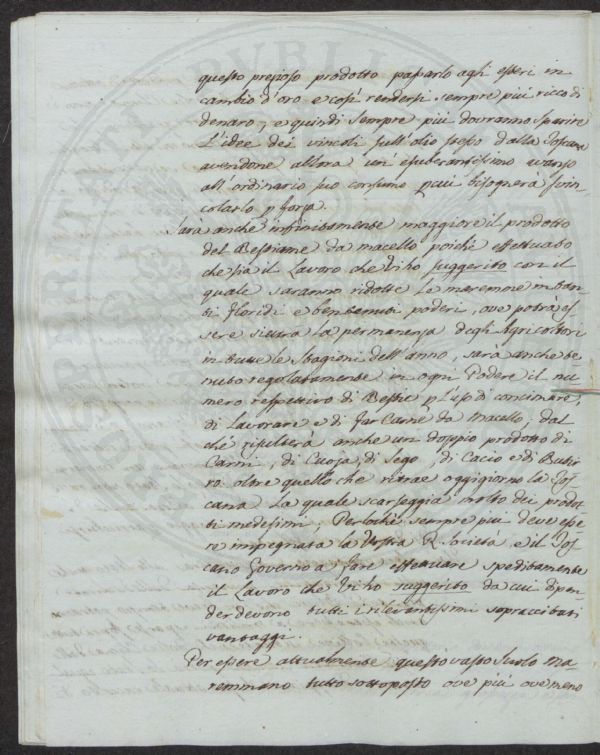 questo prezioso prodotto passarlo agli esteri in
cambio d'oro e così rendersi sempre più ricco di
denaro, e quindi sempre più dovranno sparire
L'idee dei vincoli sull'olio stesso dalla Toscana
avendone allora un' esuberantissimo avanzo
all'ordinario suo consumo p cui bisognerà svin-
colarlo p forza.
Sarà anche infinitamente maggiore il prodotto
del Bestiame da macello poichè effettuato
che sia il Lavoro che Vi ho suggerito con il
quale saranno ridotte Le maremme in tan-
ti floridi e ben tenuti poderi, ove potrà es-
sere sicura La permanenza degli Agricoltori
in tutte le Stagioni dell'anno, sarà anche te-
nuto regolatamente in ogni Podere il nu-
mero respettivo di Bestie p l'uso di concimare,
di Lavorare e di far Carne da Macello, dal
chè risulterà anche un doppio prodotto di
Carni, di Cuoja, di Sego, di Cacio e di Butir-
ro oltre quello che ritrae oggigiorno la Tos-
cana La quale scarseggia molto dei prodot-
ti medesimi; Perlochè sempre più deve esse-
re impegnata la Vostra R. Società e il Tos-
cano Governo a fare effettuare speditamente
il Lavoro che Vi ho suggerito da cui dipen-
der devono tutti i rilevantissimi sopraccitati
vantaggi.
Per essere attualmente questo vasto Suolo Ma-
remmano tutto sottoposto ove più ove meno